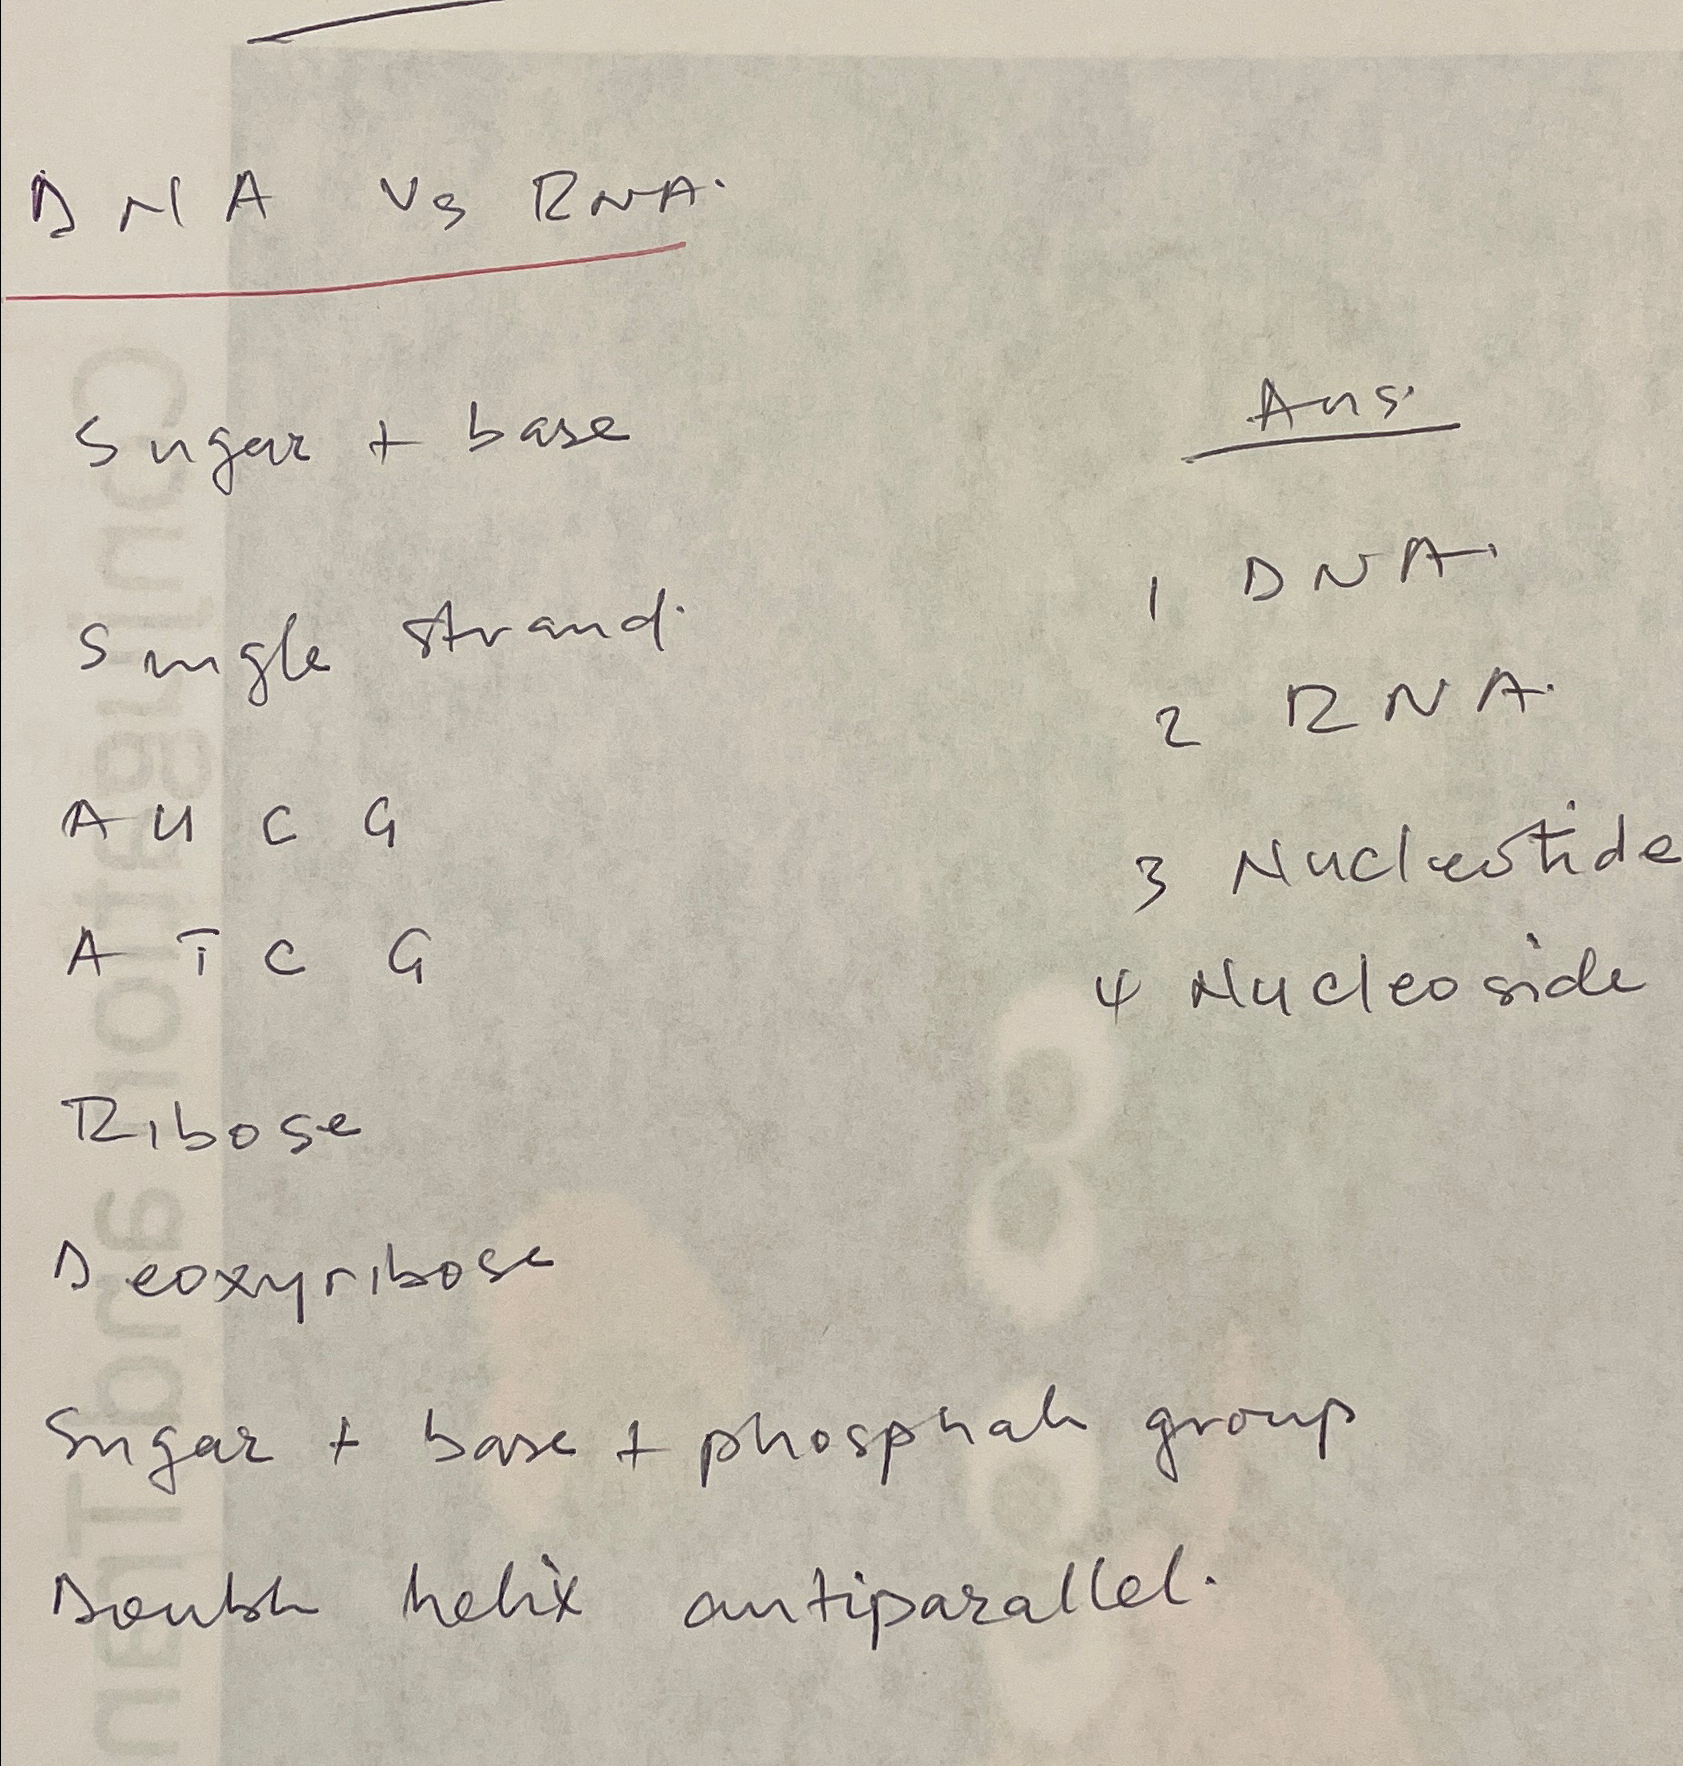 DNA Vs RNA.
Sugar + base
Single strand.
A U C G
A T C G
Ribose
Deoxyribose
Sugar + base + phosphate group
Double helix antiparallel.
Ans.
1 DNA.
2 RNA.
3 Nucleotide
4 Nucleoside